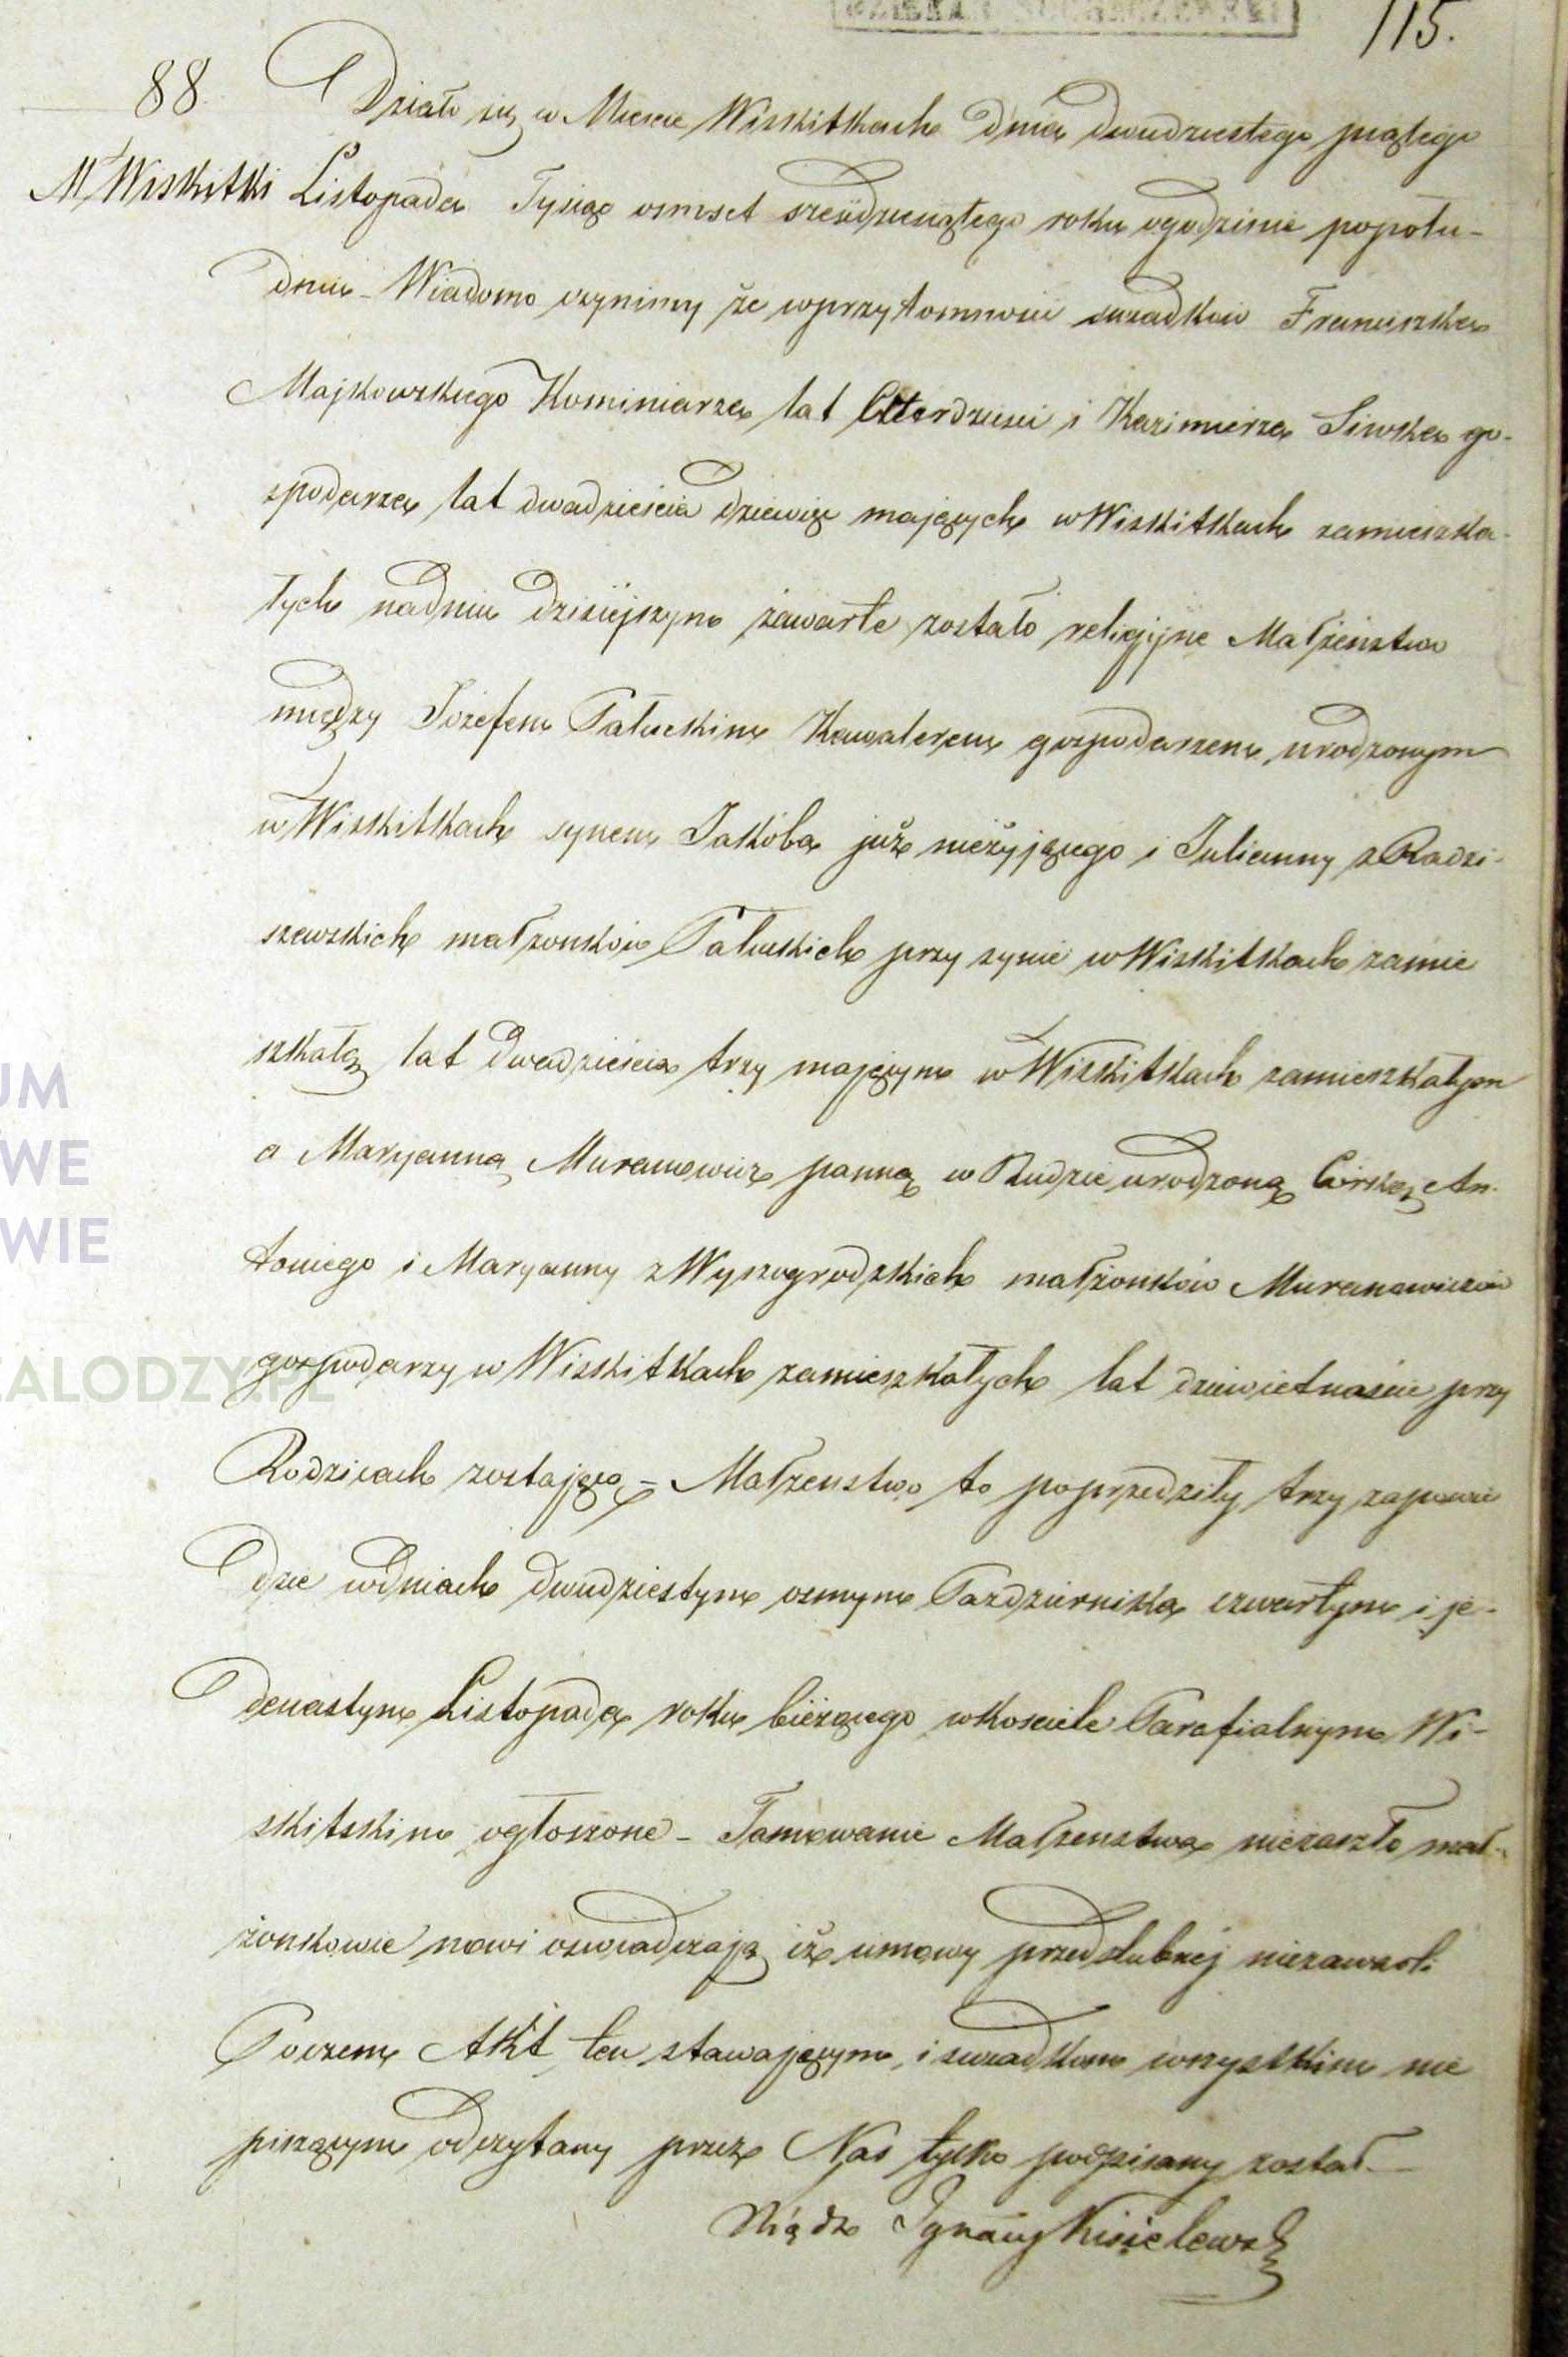 115.
88.
Działo się w Mieście Wiskitkach dnia dwudziestego piątego
M Wiskitki Listopada Tysiąc osmset sześdziesiątego roku ogodzinie popołu-
dniu - Wiadomo czynimy że wprzytomności swiadków Franciszka
Majkowskiego Kominiarza lat Czterdzieści i Kazimierza Siwska go-
spodarza lat dwadzieścia dziewięć mających w Wiskitkach zamieszka-
łych nadniu dzisiejszym zawarte zostało religijne Małżeństwo
między Józefem Pałuckim Kawalerem gospodarzem urodzonym
w Wiskitkach synem Jakóba już nieżyjącego i Julianny z Radzi-
szewskich małżonków Pałuckich przy synie w Wiskitkach zamie
szkałą lat dwadzieścia trzy mającym w Wiskitkach zamieszkałym
a Maryanną Muranowicz panną w Rudzie urodzoną Córką An-
toniego i Maryanny z Wyszogrodzkich małżonków Muranowiczów
gospodarzy w Wiskitkach zamieszkałych lat dziewietnaście przy
Rodzicach zostającą = Małżenstwo to poprzedziły trzy zapowie
dzie wdniach dwudziestym osmym Pazdziernika czwartym i je-
denastym Listopada roku bieżącego wkosciele Parafialnym Wi-
skitskim ogłoszone - Tamowanie Małżenstwa niezaszło mał-
żonkowie nowi oswiadczają iż umowy przedslubnej niezawarli
Poczem Akt ten stawającym i swiadkom wszystkim nie
piszącym odczytany przez Nas tylko podpisany został -
Xiądz Ignacy Kisielewski
UM
WE
WIE
ALODZY.PL